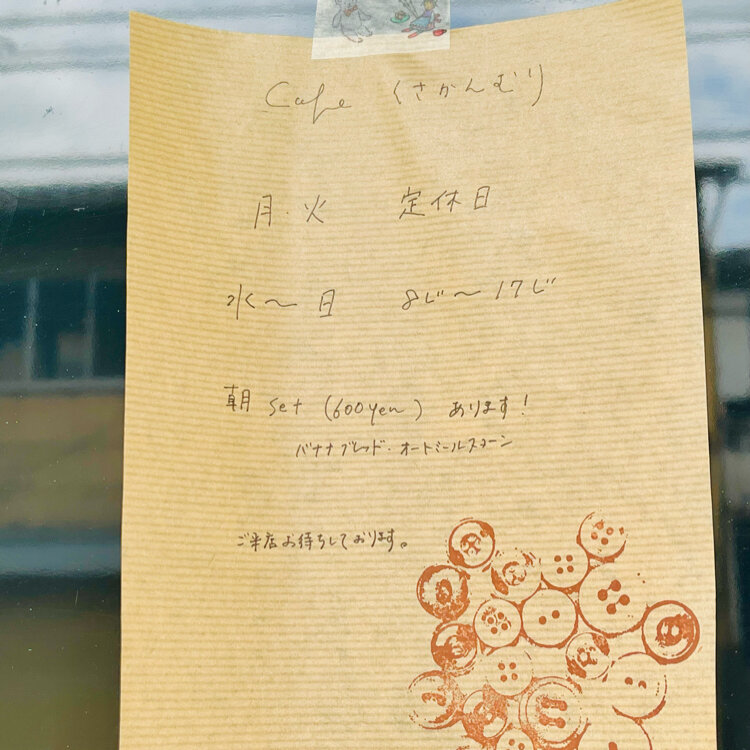 Cafe くさかんむり
月・火 定休日
水〜日 8じ〜17じ
朝 set (600yen) あります!
バナナブレッド・オートミールスコーン
ご来店お待ちしております。